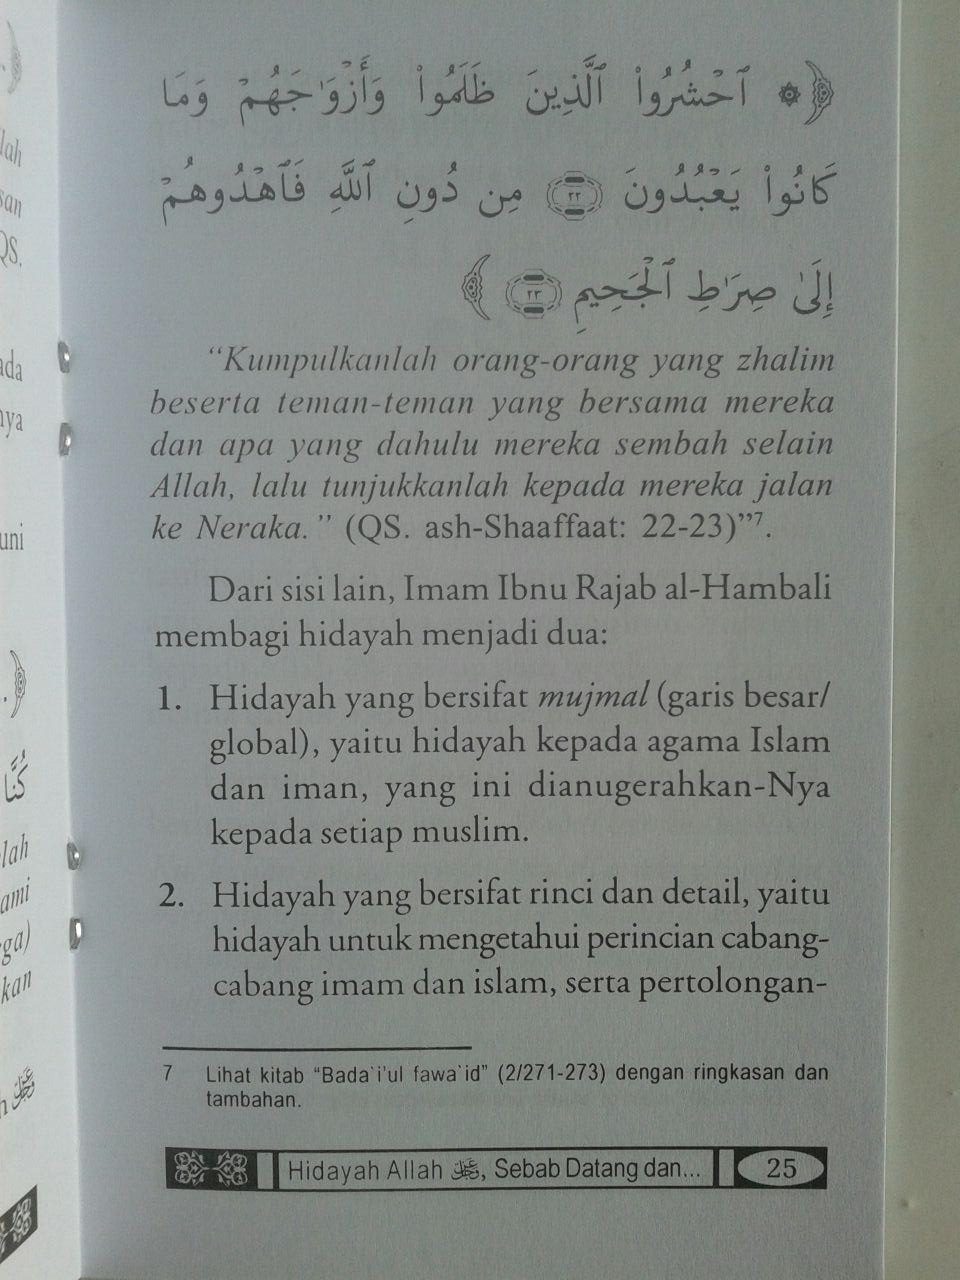 ﴿ ۞ ٱحْشُرُوا۟ ٱلَّذِينَ ظَلَمُوا۟ وَأَزْوَٰجَهُمْ وَمَا
كَانُوا۟ يَعْبُدُونَ ٢٢ مِن دُونِ ٱللَّهِ فَٱهْدُوهُمْ
إِلَىٰ صِرَٰطِ ٱلْجَحِيمِ ٢٣ ﴾
“Kumpulkanlah orang-orang yang zhalim
beserta teman-teman yang bersama mereka
dan apa yang dahulu mereka sembah selain
Allah, lalu tunjukkanlah kepada mereka jalan
ke Neraka.” (QS. ash-Shaaffaat: 22-23)”⁷.
Dari sisi lain, Imam Ibnu Rajab al-Hambali
membagi hidayah menjadi dua:
1. Hidayah yang bersifat mujmal (garis besar/
global), yaitu hidayah kepada agama Islam
dan iman, yang ini dianugerahkan-Nya
kepada setiap muslim.
2. Hidayah yang bersifat rinci dan detail, yaitu
hidayah untuk mengetahui perincian cabang-
cabang imam dan islam, serta pertolongan-
7 Lihat kitab “Bada`i’ul fawa`id” (2/271-273) dengan ringkasan dan
tambahan.
Hidayah Allah ﷻ, Sebab Datang dan... 25